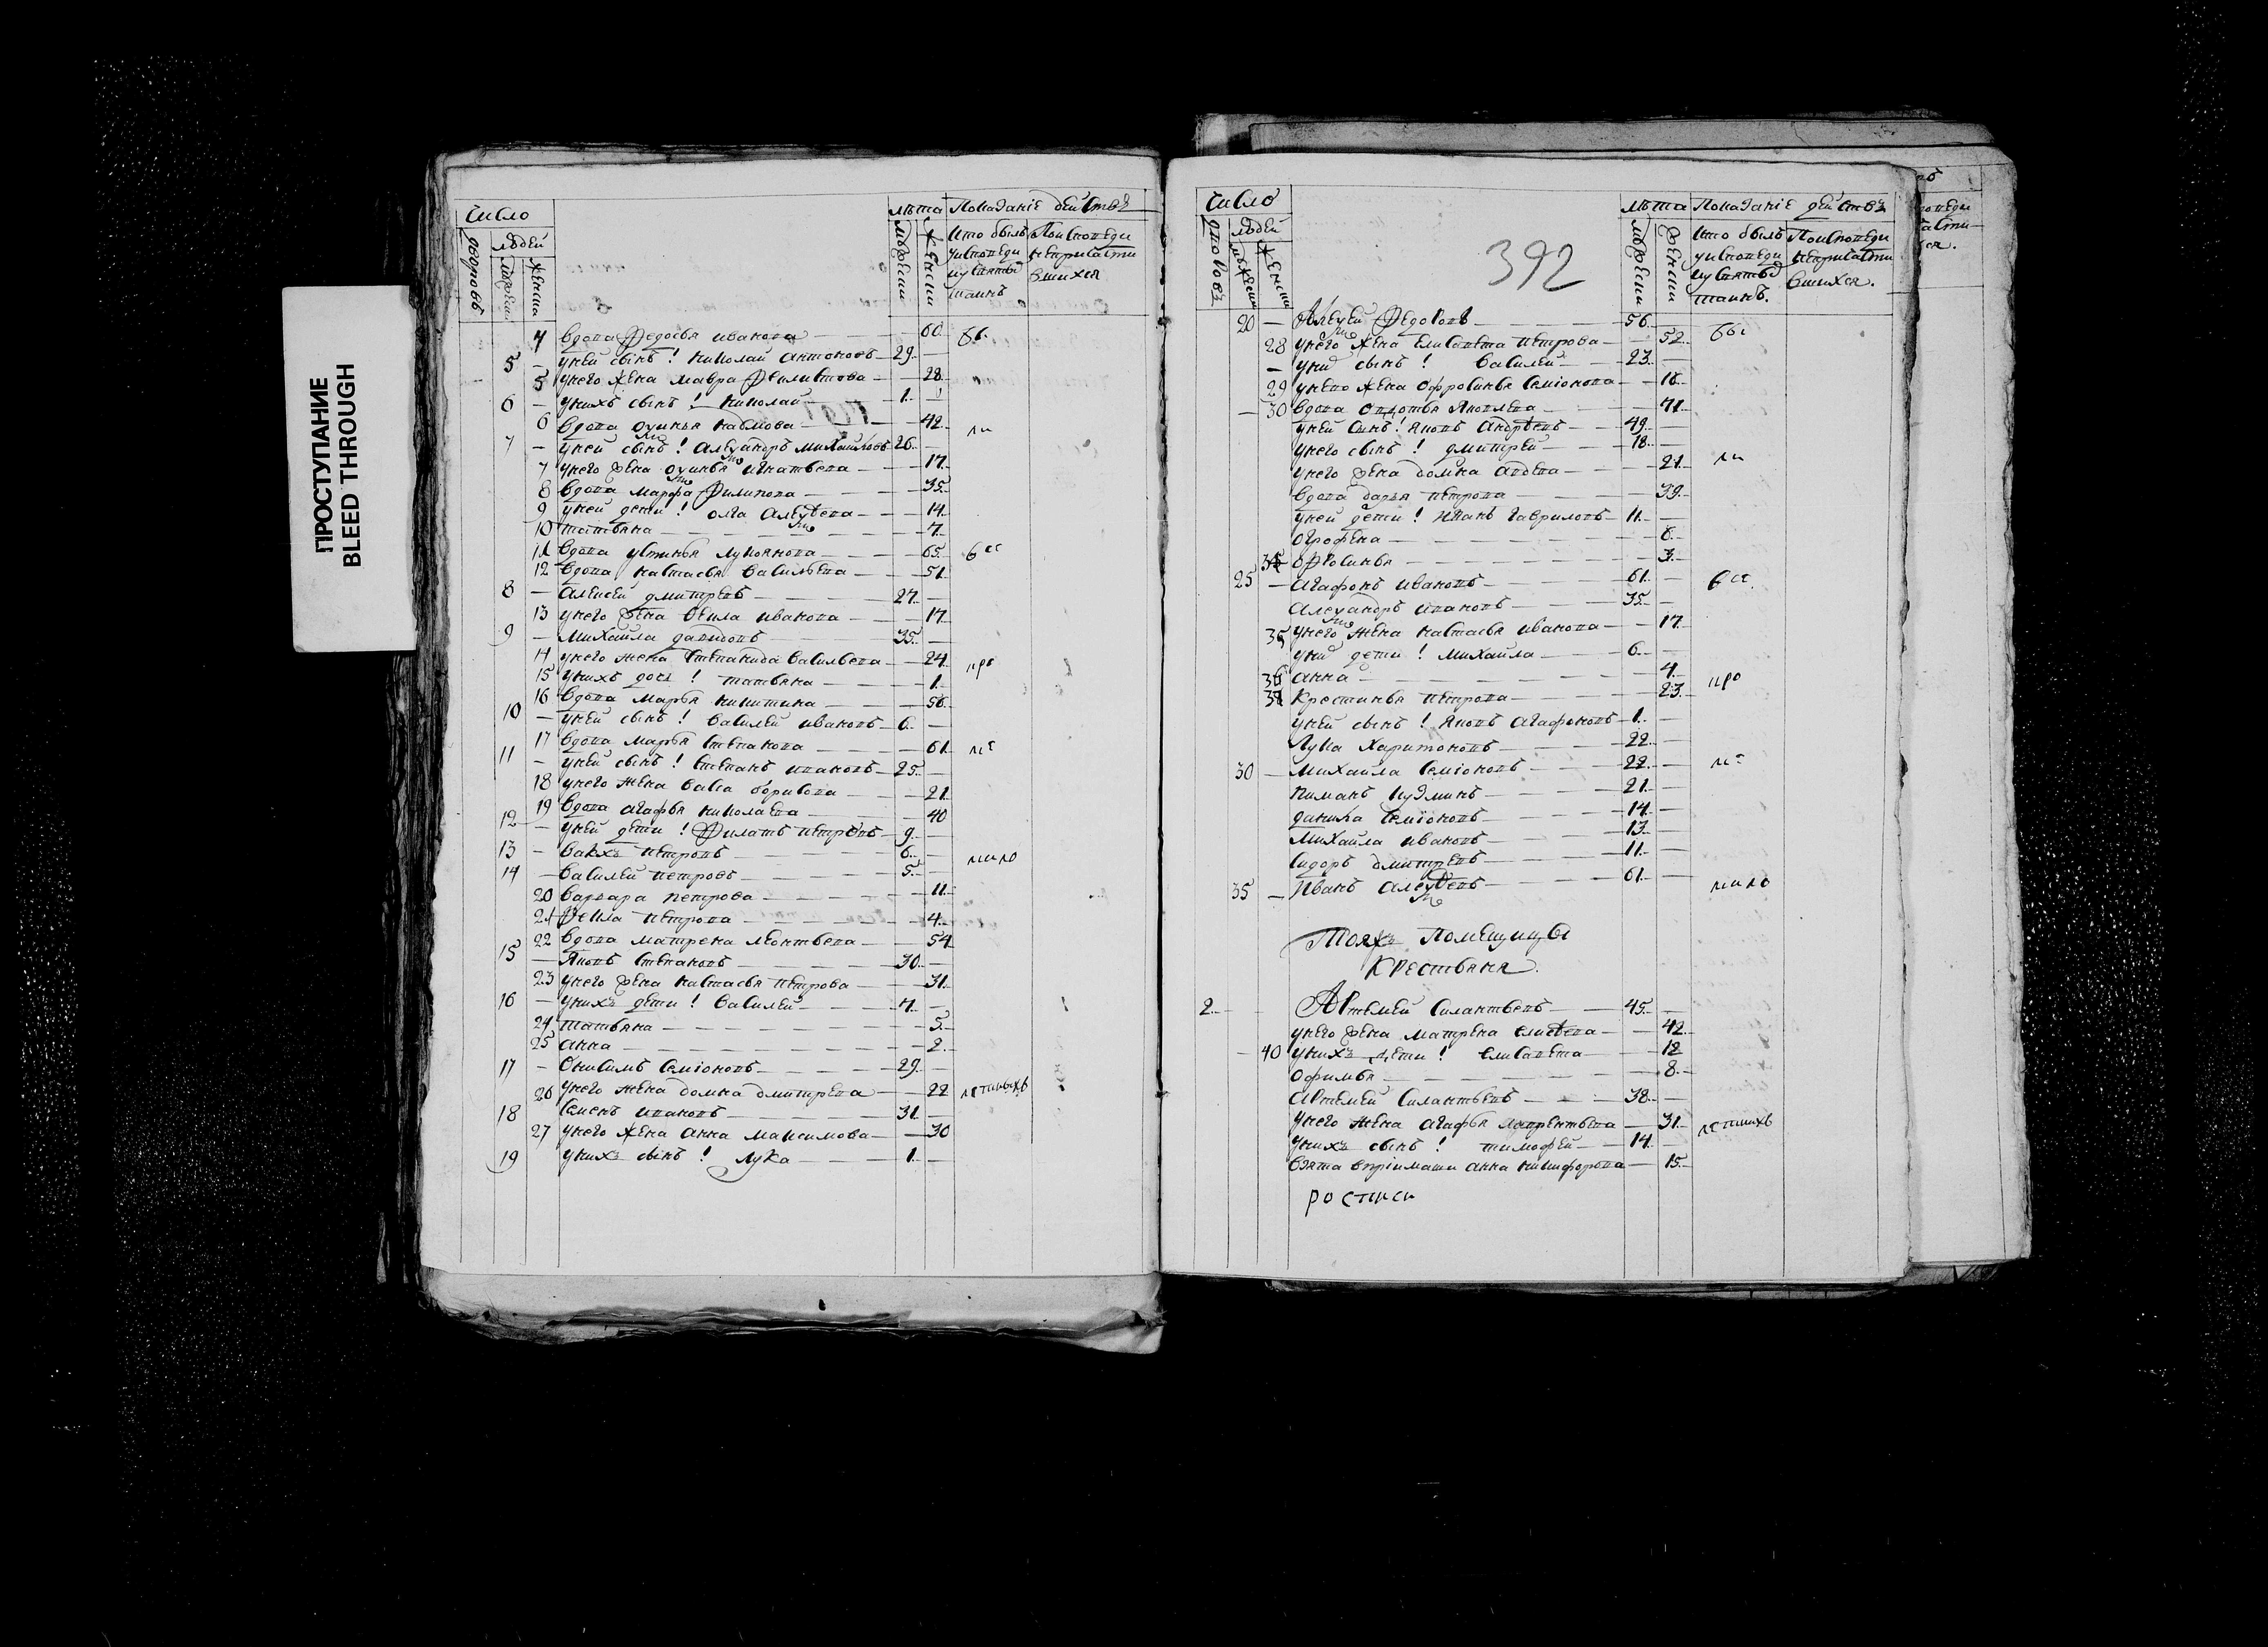 ПРОСТУПАНИЕ
BLEED THROUGH
число
лѣта Показаніе действъ
дворовъ
людей
мужески
женски
мужески
женски
Кто былъ
у исповеди
и у святыхъ
таинъ
По исповеди
не причасти
вшихся
4 вдова Федосья иванова — 60 бь
5 — у ней сынъ ! николай антоновъ — 29
5 у него жена мавра — 28
6 — у нихъ сынъ ! николай — 1
6 вдова — 42 ли
7 — у ней сынъ ! александръ михайловъ 26
7 у него жена игнатьева — 17
8 вдова марфа Филипова — 35
9 у ней дети ! олга алексѣева — 14
10 татьяна — 7
11 вдова устинья лукоянова — 65 бсс
12 вдова настасья васильева — 51
8 — алексей дмитревъ — 27
13 у него жена Фекла иванова — 17
9 — михайла давыдовъ — 35
14 у него жена степанида васильева — 24 про
15 у нихъ дочь ! татьяна — 1
16 вдова марья никитина — 56
10 — у ней сынъ ! василей ивановъ — 6
17 вдова марья степанова — 61 ис
11 — у ней сынъ ! степанъ ивановъ — 25
18 у него жена васса борисова — 21
19 вдова агафья николаева — 40
12 — у ней дети ! Филатъ петровъ — 9
13 — вакхъ петровъ — 6 мало
14 — василей петровъ — 5
20 варвара петрова — 11
21 Фекла петрова — 4
22 вдова матрена леонтьева — 54
15 — яковъ степановъ — 30
23 у него жена настасья петрова — 31
16 — у нихъ дети ! василей — 7
24 татьяна — 5
25 анна — 2
17 — онисимъ семіоновъ — 29
26 у него жена домна дмитрева — 22 летныхъ
18 семенъ ивановъ — 31
27 у него жена анна максимова — 30
19 у нихъ сынъ ! лука — 1
число
лѣта Показаніе действъ
дворовъ
людей
мужески
женски
мужески
женски
Кто былъ
у исповеди
и у святыхъ
таинъ.
По исповеди
не причасти
вшихся.
392
20 — алексей Федоровъ — 56 бьс
28 у него жена елисавета петрова — 52
— у нихъ сынъ ! василей — 23
29 у него жена офросинья семіонова — 18
— 30 вдова яковлева — 71
у ней сынъ ! яковъ андрѣевъ — 49
у него сынъ ! дмитрей — 18
у него жена домна авдѣева — 21 ли
вдова дарья петрова — 39
у ней дети ! иванъ гавриловъ — 11
огрофена — 6
34 офросинья — 3
25 — агафонъ ивановъ — 61 бсс.
александръ ивановъ — 35
35 у него жена настасья иванова — 17
у нихъ дети ! михайла — 6
36 анна — 4
крестинья петрова — 23 про
у ней сынъ ! яковъ агафоновъ — 1
лука харитоновъ — 22
30 — михайла семіоновъ — 22 ис
кузминъ — 21
данила семіоновъ — 14
михайла ивановъ — 13
сидоръ дмитревъ — 11
35 — иванъ алексѣевъ — 61 мало
Тояжъ Помещицы
крестьяня.
2 Артемей силантьевъ — 45
у него жена матрена елисѣева — 42
— 40 у нихъ дети ! елисавета — 12
офимья — 8
артемей силантьевъ — 38
у него жена агафья лаврентьева — 31 летнихъ
у нихъ сынъ ! тимофей — 14
взята в пріимаши анна никифорова — 15
росписи